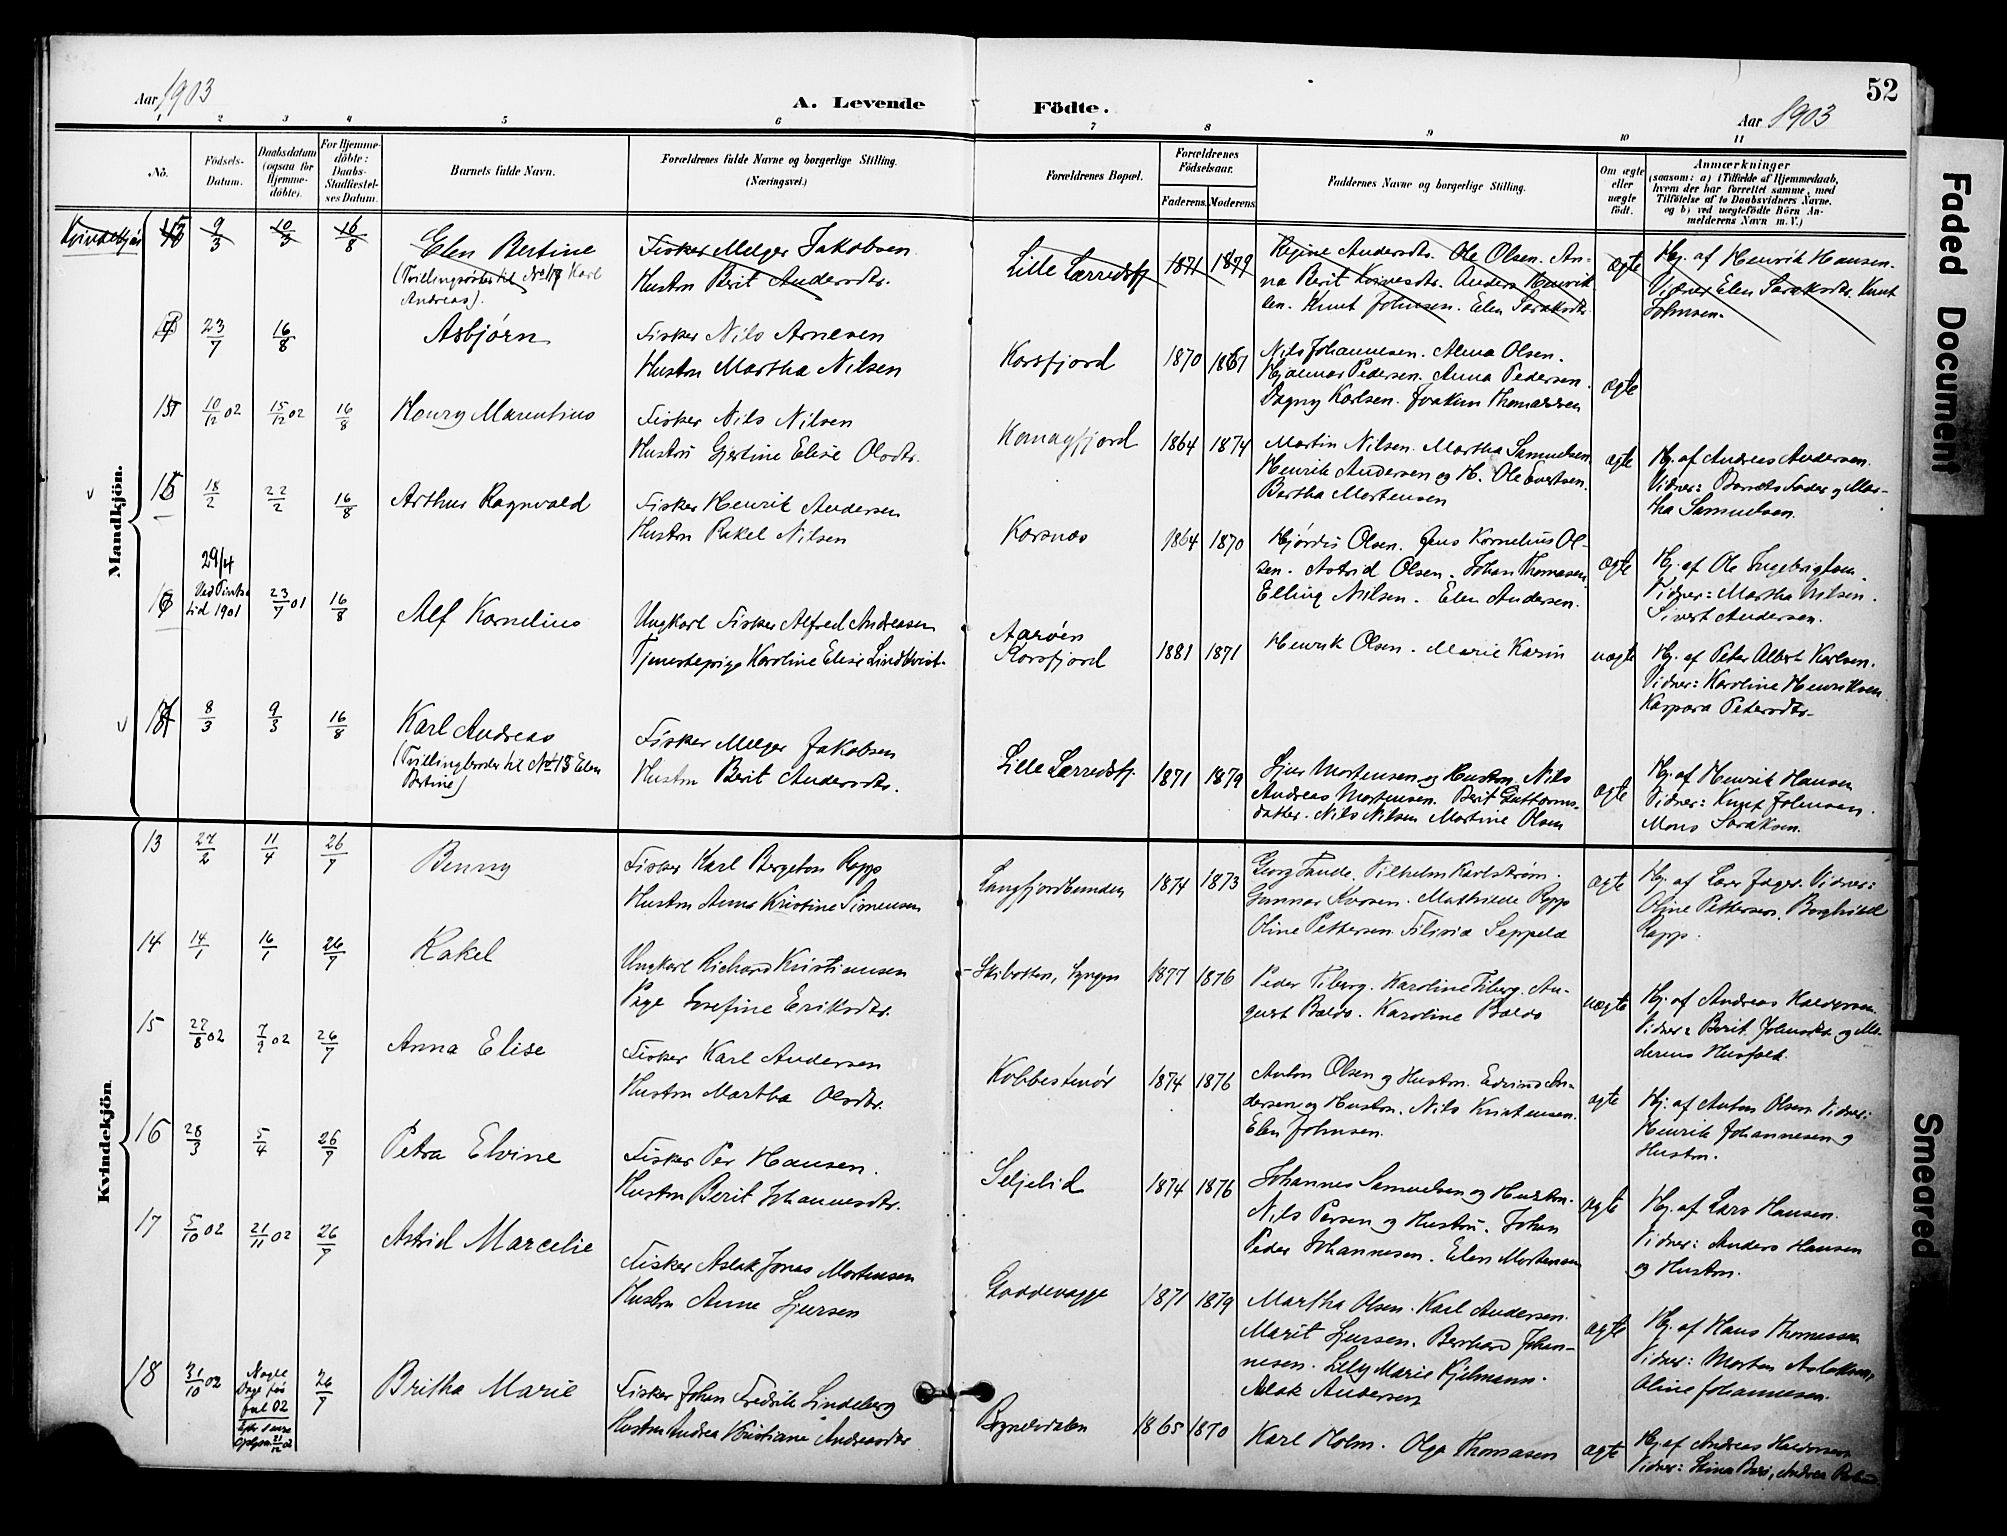 52
Aar 1903
A. Levende Födte.
Aar 1903
1 2 3 4 5 6 7 8 9 10 11
No.
Födsels-
Datum.
Daabsdatum
(ogsaa for
Hjemme-
döbte).
For Hjemme-
döbte:
Daabs-
Stadfæstel-
ses Datum.
Barnets fulde Navn.
Forældrenes fulde Navne og borgerlige Stilling.
(Næringsvei.)
Forældrenes Bopæl.
Forældrenes
Födselsaar.
Faderens. Moderens.
Faddernes Navne og borgerlige Stilling.
Om ægte
eller
uægte
födt.
Anmærkninger
(saasom: a) i Tilfælde af Hjemmedaab,
hvem der har forrettet samme, med
Tilföielse af to Daabsvidners Navne,
og b) ved uægtefödte Börn An-
melderens Navn m. V.)
Mandkjön.
Kvindekjön
9/3 10/3 16/8
Elen Bertine
(Tvillingsøster til No 18 Karl
Andreas).
Fisker Melger Jakobsen
Hustru Berit Andersdtr.
Lille Lærredsfj.
1871 1879
Ole Olsen. An-
na Berit
sen. Knut Johnsen. Elen Saraksdtr.
ægte
Hj. af Henrik Hansen.
Vidner Elen Saraksdtr. Knut
Johnsen.
23/7 16/8
Asbjörn
Fisker Nils Arnesen
Hustru Martha Nilsen
Korsfjord
1870 1867
Nils Johannesen. Alma Olsen.
Hjalmar Pedersen. Anna Pedersen.
Dagny Karlsen. Joakim Thomassen
ægte
10/12 02 15/12 02 16/8
Henry Marentius
Fisker Nils Nilsen
Hustru Gjertine Elise Olsdtr.
Komagfjord
1864 1874
Martin Nilsen. Martha Samuelsen
Henrik Andersen og H. Ole Evertsen.
Bertha Mortensen
ægte
Hj. af Andreas Andersen.
Vidner: Barnets Fader og Mar-
tha Samuelsen.
18/2 22/2 16/8
Arthur Ragnvald
Fisker Henrik Andersen
Hustru Rakel Nilsen
Korsnes
1864 1870
Hjördis Olsen. Jens Kornelius Ol-
sen. Astrid Olsen. Johan Thomasen
Elling Nilsen. Elen Andersen.
ægte
Hj. af Ole Ingebrigtsen.
Vidner: Martha Nilsen.
Sivert Andersen.
29/4
Ved Pintse
tid 1901
23/7 01 16/8
Alf Kornelius
Ungkarl Fisker Alfred Andreasen
Tjenestepige Karoline Elise Lindkvist.
Aarøen
Korsfjord
1881 1871
Henrik Olsen. Marie Karin
uægte
Hj. af Peter Albert Karlsen.
Vidner: Karoline Henriksen
Kaspara Petersdtr.
8/3 9/3 16/8
Karl Andreas
(Tvillingbroder til No 13 Elen
Bertine)
Fisker Melger Jakobsen
Hustru Berit Andersdtr.
Lille Lærredsfj.
1871 1879
Sjur Mortensen og Hustru. Nils
Andreas Mortensen. Berit Guttorms-
datter. Nils Nilsen Martine Olsen
ægte
Hj. af Henrik Hansen
Vidner: Knut Johnsen.
Mons Saraksen.
Kvindekjön.
13 27/2 11/4 26/7
Benny
Fisker Karl Bergeton Rapp
Hustru Anna Kristine Simensen
Langfjordbunden
1874 1873
Georg Tande. Vilhelm Karlström.
Gunnar Iversen. Mathilde Rapp
Oline Pettersen. Seppelä
ægte
Hj. af Lærer Jager. Vidner:
Oline Pettersen. Borghild
Rapp.
14 14/1 16/1 26/7
Rakel
Ungkarl Richard Kristiansen
Pige Josefine Eriksdtr.
Skibotten, Lyngen
1877 1876
Peder Fiberg. Karoline Fiberg. Au-
gust Baldo. Karoline Baldo
uægte
Hj. af Andreas Haldorsen
Vidner: Berit Johnsdtr og Mo-
derens Husfolk.
15 27/8 02 7/9 02 26/7
Anna Elise
Fisker Karl Andersen
Hustru Martha Olsdtr.
Kobbestenör
1874 1876
Anton Olsen og Hustru. Edvind An-
dersen og Hustru. Nils Kristensen.
Elen Johnsen.
ægte
Hj. af Anton Olsen Vidner:
Henrik Johannesen og
Hustru.
16 28/3 5/4 26/7
Petra Elvine
Fisker Per Hansen.
Hustru Berit Johannesdtr.
Seljelid
1874 1876
Johannes Samuelsen og Hustru.
Nils Persen og Hustru. Johan
Peder Johannesen. Elen Mortensen
ægte
Hj. af Lars Hansen.
Vidner: Anders Hansen
og Hustru.
17 5/10 02 21/11 02 26/7
Astrid Marcelie
Fisker Aslak Jonas Mortensen
Hustru Anne Sjursen
Goddevagge
1871 1879
Martha Olsen. Karl Andersen.
Marit Sjursen. Berhard Johan-
nesen. Lilly Marie Kjelmann.
Aslak Andersen
ægte
Hj. af Hans Thomassen
Vidner: Morten Aslaksen,
Oline Johannesen.
18 31/10 02
Nogle
Dage før
Jul 02
21/12 02
26/7
Britha Marie
Fisker Johan Fredrik Lindeberg
Hustru Andrea Kristiane Andreasdtr
Rognelvdalen
1865 1870
Karl Holm. Olga Thomasen
ægte
Hj. af Andreas Haldorsen
Vidner: Stina
Faded Document
Smeared